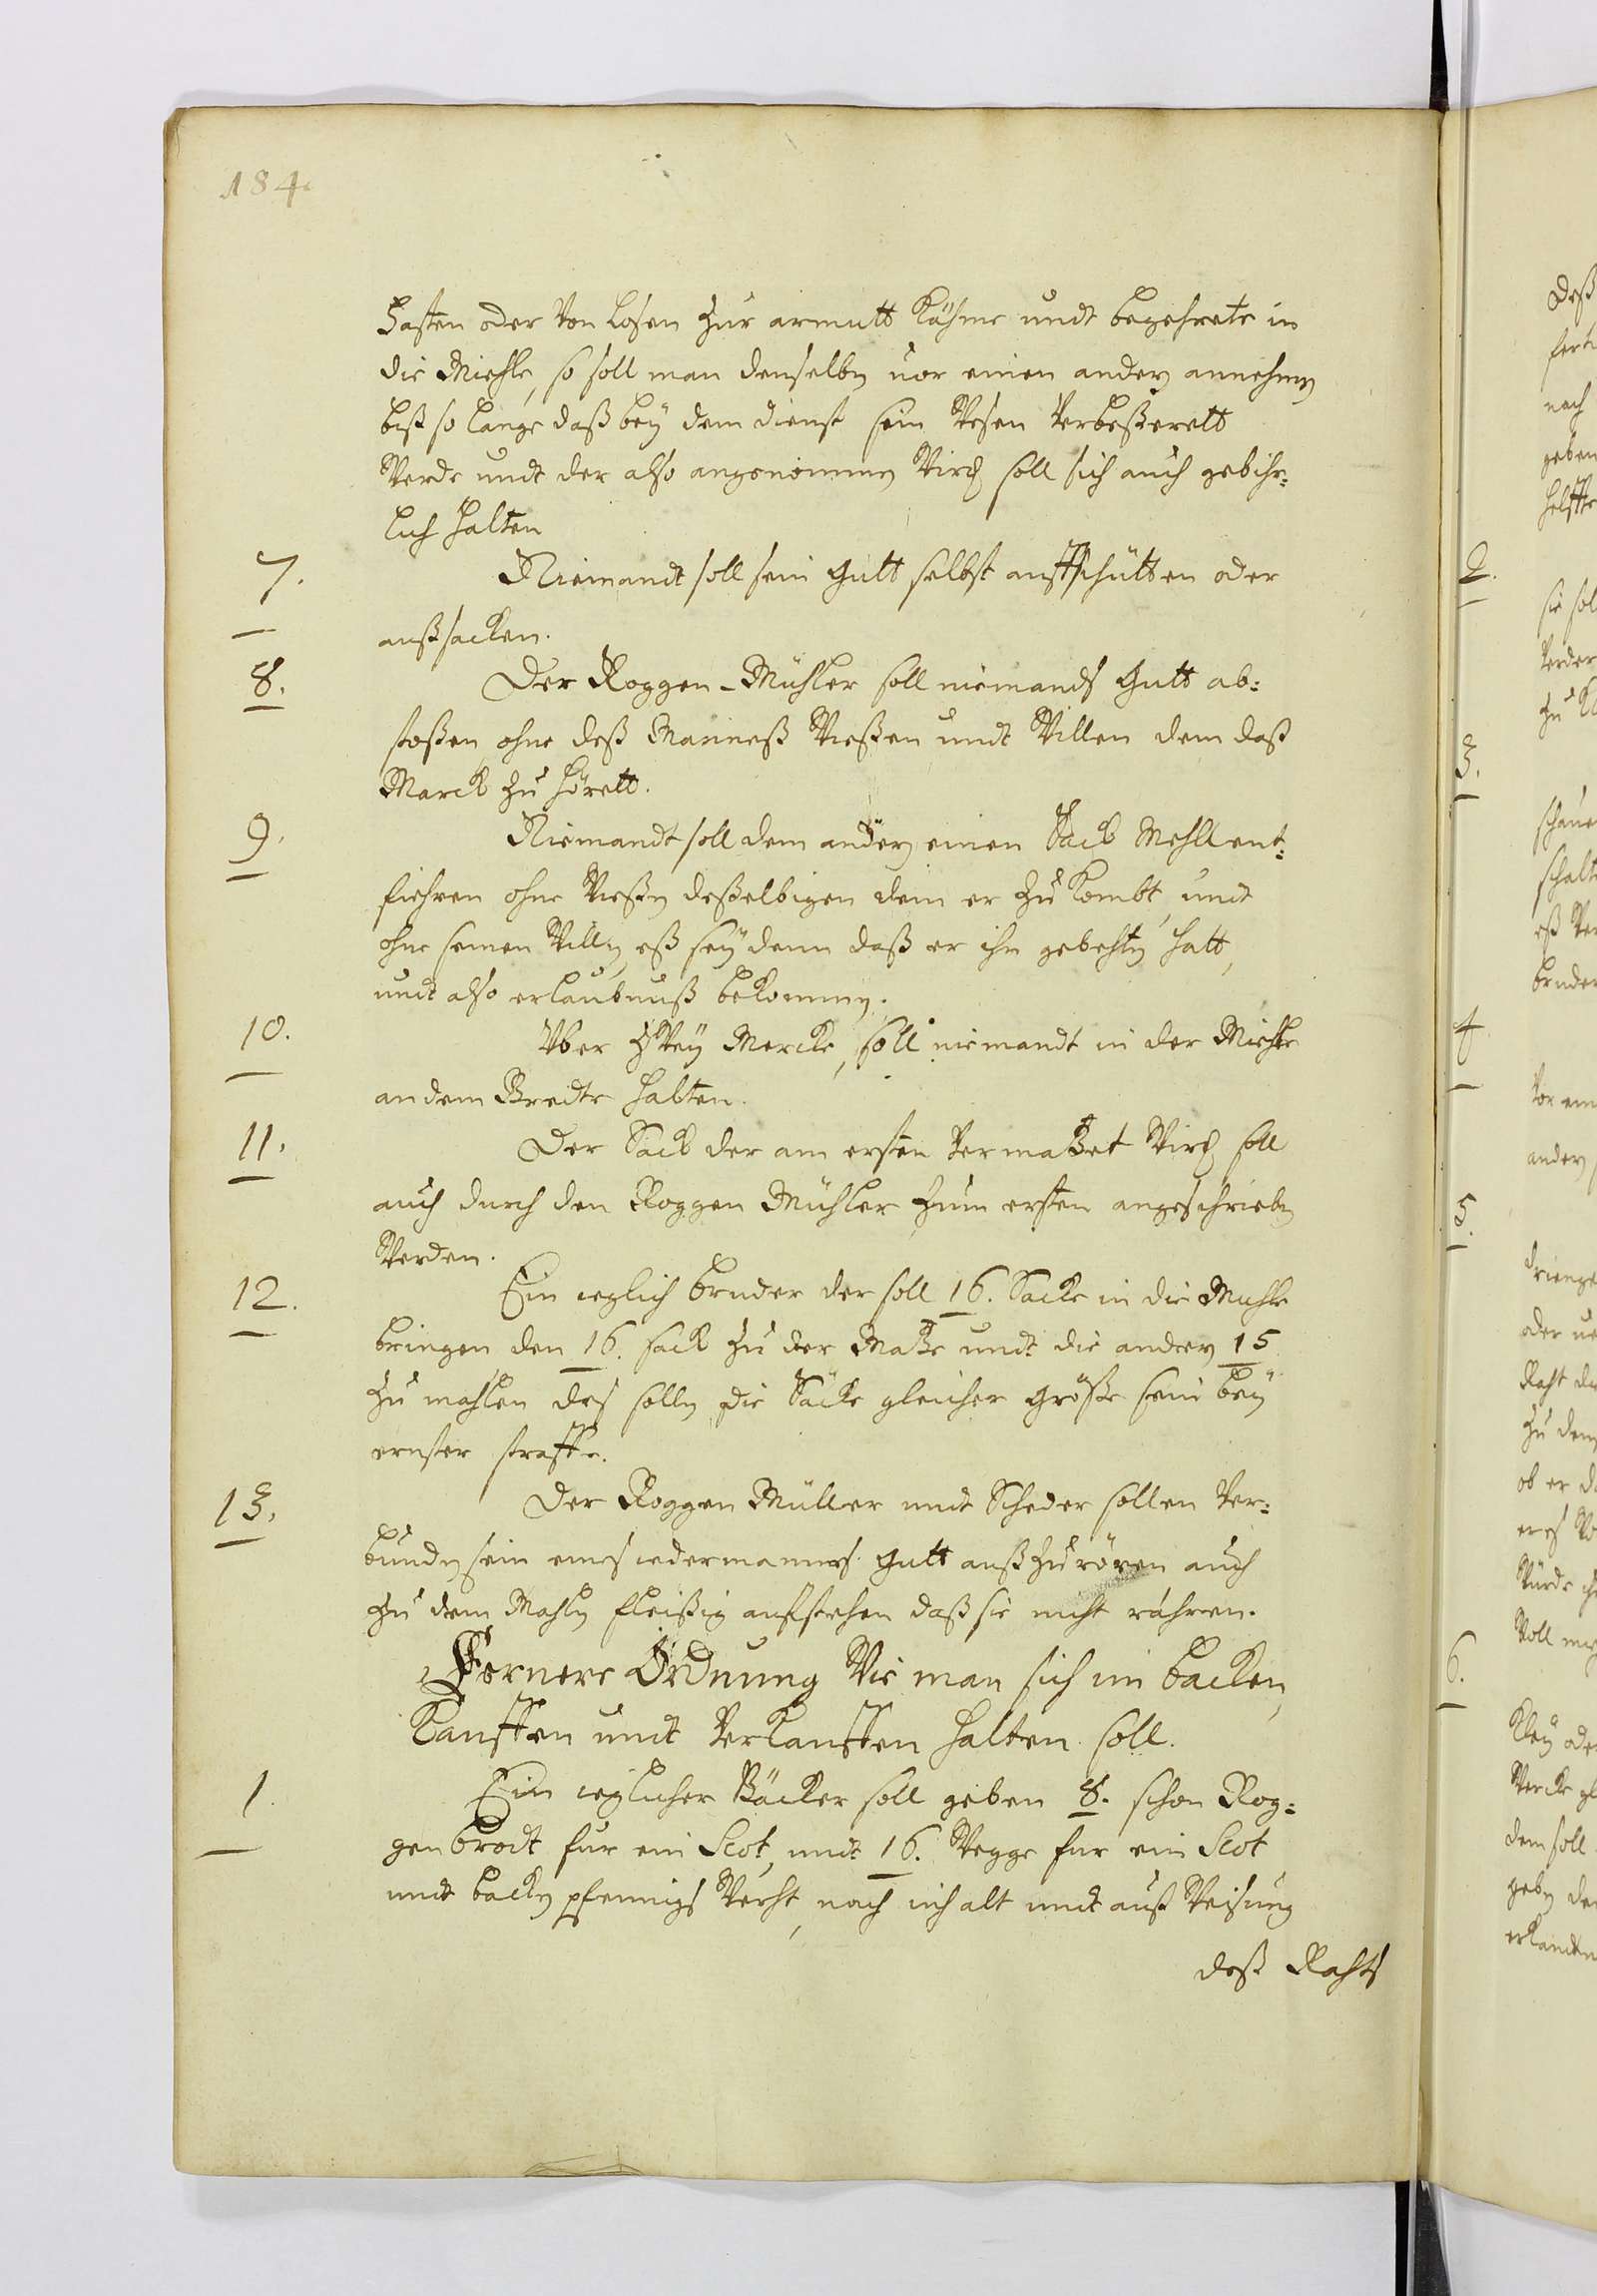 184.
Hasten oder von losen zur armutt kähme undt begehrete in
die Miehle, so soll man denselbn vor einen andern annehmen
biß so lange daß bey dem dienst sein Wesen verbeßerett
Werde undt der also angenommen Wird soll sich auch gebihr=
lich halten
7. Niemandt soll sein gutt selbst auffschütten oder
außsacken.
8. Der Roggen-Mühler soll niemands Gutt ab=
stoßen ohne deß Manneß Wießen undt Willen dem daß
Marck zu hörett.
9. Niemandt soll dem andern einen Sack Mehll ent=
fiehren ohne Wießn deßelbigen dem er zu kombt, undt
ohne seinen Willn, eß sey denn daß er ihn gebehtn hatt,
undt also erlaubnuß bekommen.
10. Vber Zwey Mercke, soll niemandt in der Miehle
an dem Bredte halten.
11. Der Sack der am ersten vermatzet Wird soll
auch durch den Roggen Mühler zum ersten angeschriebn
Werden.
12. Ein ieglich bruder der soll 16. Säcke in die Muhle
bringen den 16. sack zu der Matze undt die andern 15
zu mahlen des solln die Säcke gleicher größe sein bey
ernster straffe.
13. Der Roggen Müller undt Scheder sollen ver=
bundn sein eines iedermannes gutt auß zu rören auch
zu dem Mahln fleißig aufsehen daß sie nicht rähren.
Fernere Ordnung Wie man sich im backen,
Kauffen undt Verkauffen halten soll.
1. Ein ieglicher Bäcker soll geben 8. schon Rog=
gen brodt fur ein Scot, undt 16. Wegge fur ein Scot
undt backn pfennigs Werht, nach inhalt undt auß Weisung
deß Rahts
2.
3.
4
5.
6.